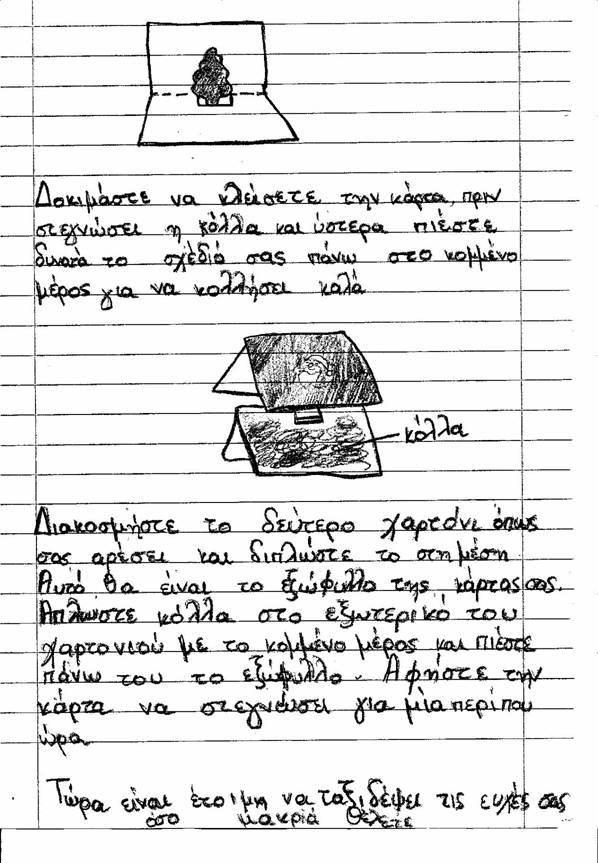 Δοκιμάστε να κλείσετε την κάρτα, πριν
στεγνώσει η κόλλα και ύστερα πιέστε
δυνατά το σχέδιό σας πάνω στο κομμένο
μέρος για να κολλήσει καλά
κόλλα
Διακοσμήστε το δεύτερο χαρτόνι όπως
σας αρέσει και διπλώστε το στη μέση
Αυτό θα είναι το εξώφυλλο της κάρτας σας.
Απλώστε κόλλα στο εξωτερικό του
χαρτονιού με το κομμένο μέρος και πιέστε
πάνω του το εξώφυλλο. Αφήστε την
κάρτα να στεγνώσει για μία περίπου
ώρα
Τώρα είναι έτοιμη να ταξιδέψει τις ευχές σας
όσο μακριά θέλετε